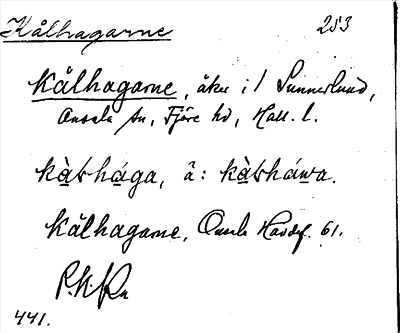 Kålhagarne 253
Kålhagarne, åker i / Sunnerlund,
Onsala sn, Fjäre hd, Hall. l.
kàshága, ä: kàsháwa.
Kålhagarne, Onsala 61.
441.